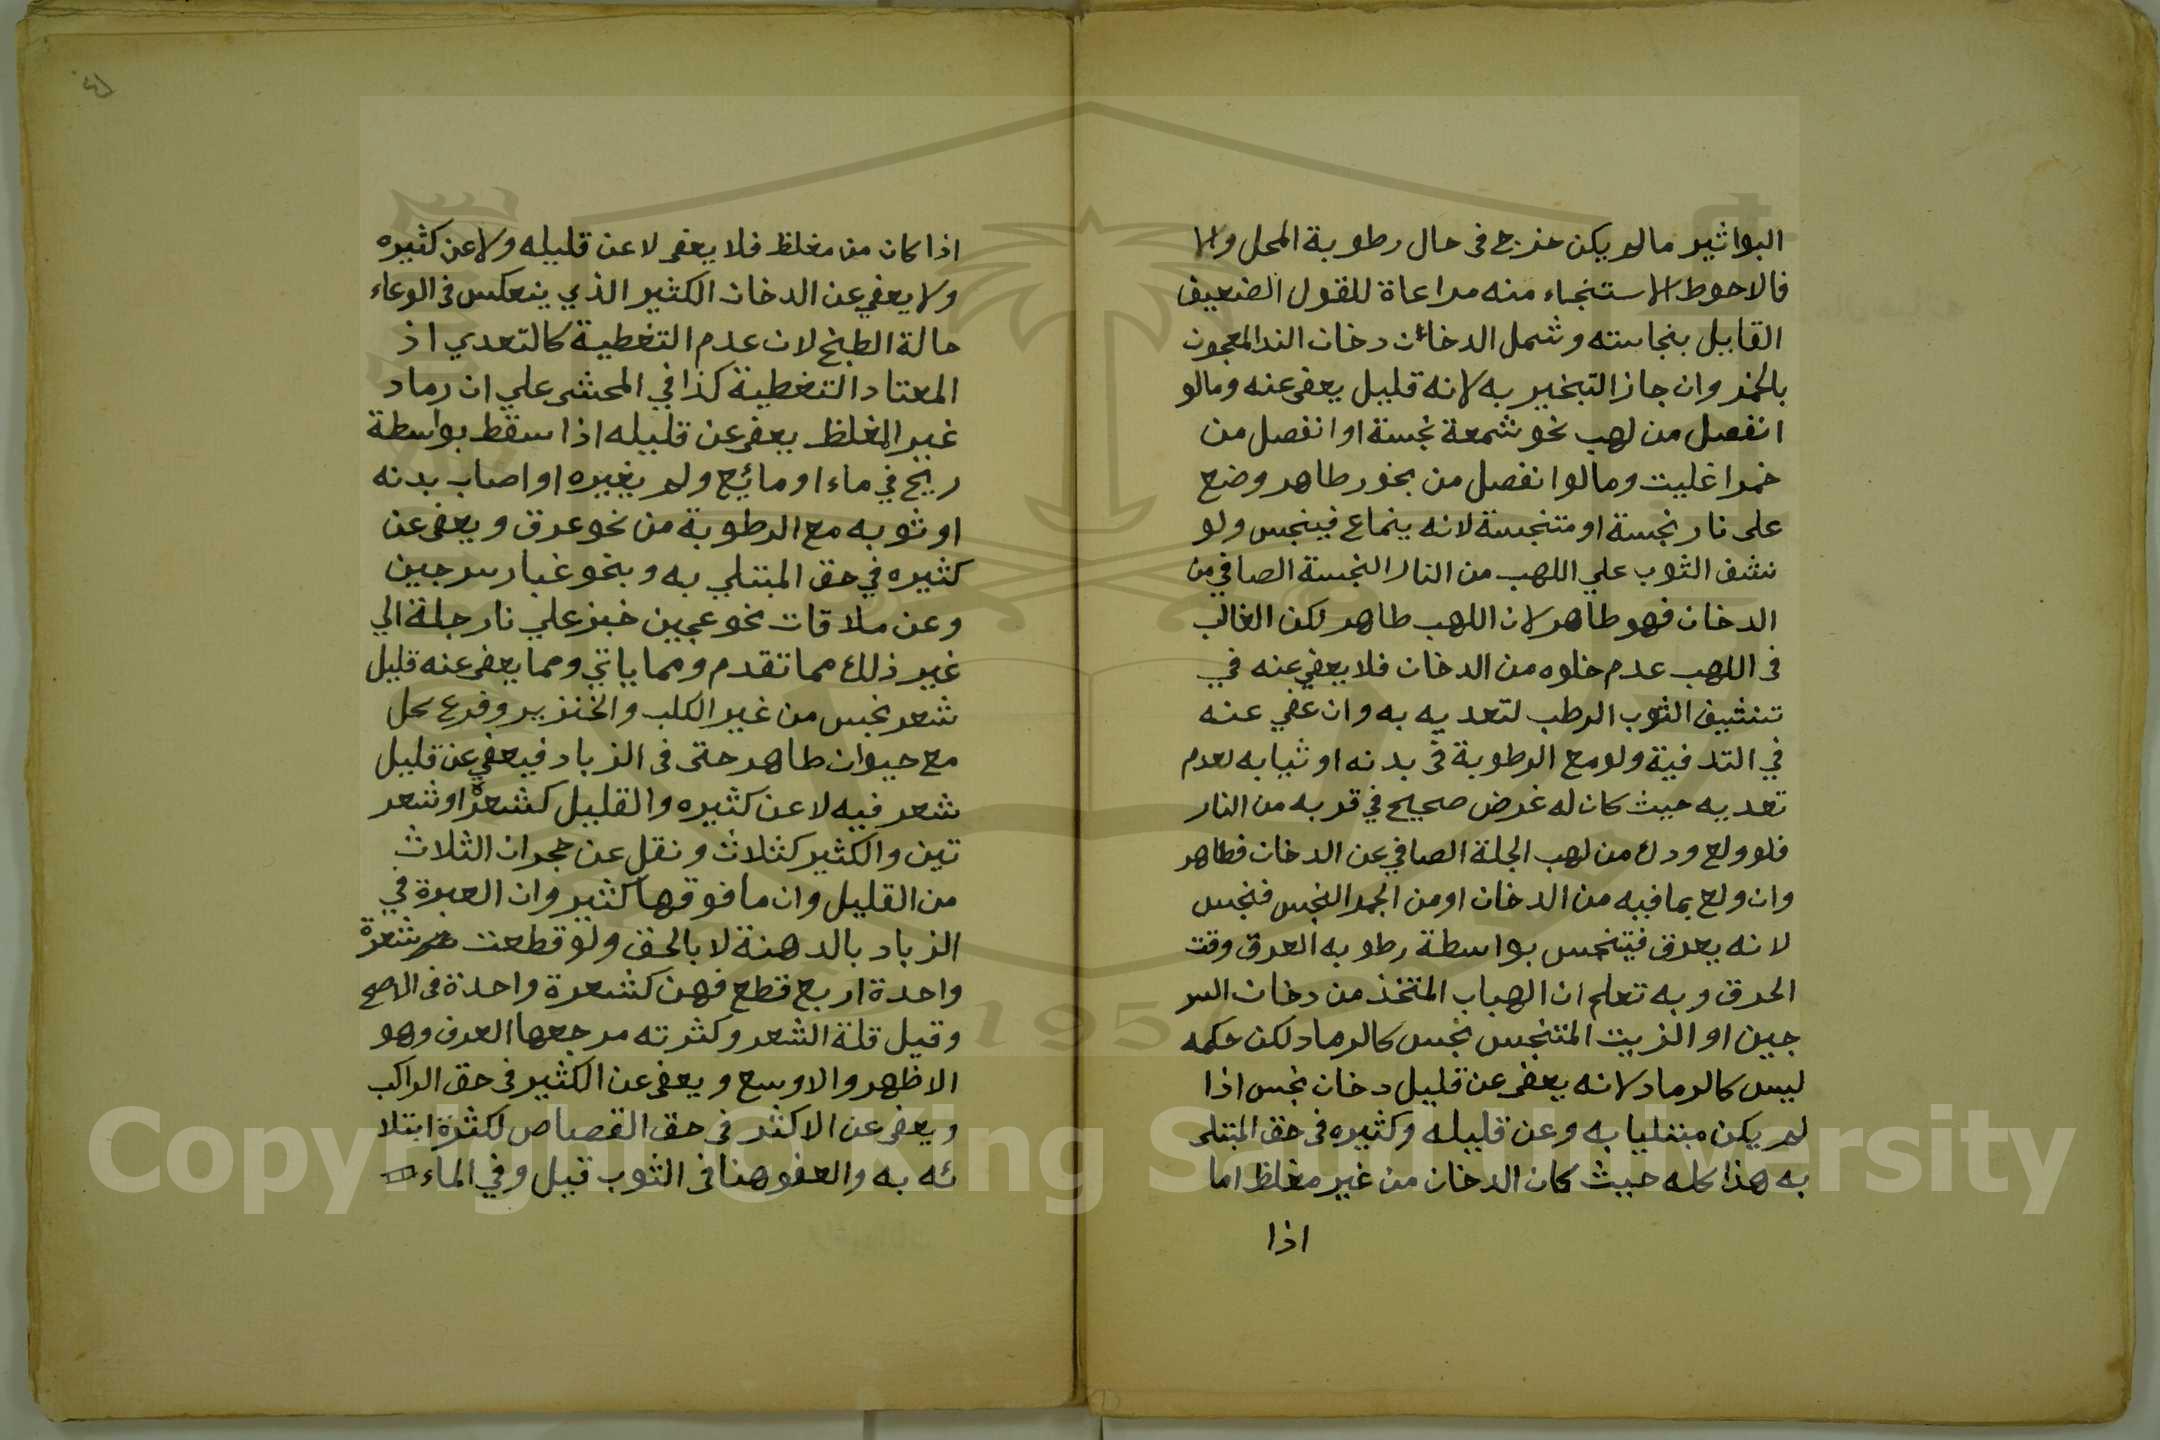 البواثير مالم يكن خرج في حال رطوبة المحل والا
فالاحوط الاستنجاء منه مراعاة للقول الضعيف
القايل بنجاسته وشمل الدخان دخان الند المعجون
بالخمر وان جاز التبخير به لانه قليل يعفى عنه ومالو
انفصل من لهب نحو شمعة نجسة او انفصل من
خمر اغليت ومالوا نفصل من بخور طاهر وضع
على نار نجسة او متنجسة لانه ينماع فينجس ولو
نشف الثوب علي اللهب من النار النجسة الصافي من
الدخان فهو طاهر لان اللهب طاهر لكن الغالب
في اللهب عدم خلوه من الدخان فلا يعفي عنه في
تنشيف الثوب الرطب لتعديه به وان عفي عنه
في التدفية ولو مع الرطوبة في بدنه او ثيابه لعدم
تعديه حيث كان له غرض صحيح في قربه من النار
فلو ولع ودك من لهب الجلة الصافي عن الدخان فطاهر
وان ولع بما فيه من الدخان او من الجمر النجس فنجس
لانه يعرق فيتنجس بواسطة رطوبه العرق وقت
الحرق وبه تعلم ان الهباب المتخذ من دخان السر
جين او الزيت المتنجس نجس كالرماد لكن حكمه
ليس كالرماد لانه يعفى عن قليل دخان نجس اذا
لم يكن مبتليا به وعن قليله وكثيره في حق المبتلى
به هذا كله حيث كان الدخان من غير مغلظ اما
اذا
اذا كان من مغلظ فلا يعفى لا عن قليله ولا عن كثيره
ولا يعفي عن الدخان الكثير الذي ينعكس في الوعاء
حالة الطبخ لان عدم التغطية كالتعدي اذ
المعتاد التغطية كذا في المحشى علي ان رماد
غير المغلظ يعفى عن قليله اذا سقط بواسطة
ريح في ماء او مائع ولم يغيره او اصاب بدنه
او ثوبه مع الرطوبة من نحو عرق ويعفى عن
كثيره في حق المبتلي به وبنحو غبار سرجين
وعن ملاقات نحو عجين خبز علي نار جلة الي
غير ذلك مما تقدم ومما ياتي ومما يعفى عنه قليل
شعر نجس من غير الكلب والخنزير وفرع كل
مع حيوان طاهر حتى في الزباد فيعفي عن قليل
شعر فيه لا عن كثيره والقليل كشعرة او شعر
تين والكثير كثلاث ونقل عن حجر ان الثلاث
من القليل وان ما فوقها كثير وان العبرة في
الزباد بالدهنة لا بالحق ولو قطعت شعرة
واحدة اربع قطع فهن كشعرة واحدة في الاصح
وقيل قلة الشعر وكثرته مرجعها العرف وهو
الاظهر والاوسع ويعفى عن الكثير في حق الراكب
ويعفى عن الاكثر في حق القصاص لكثرة ابتلا
ئه به والعفو هنا في الثوب قيل وفي الماء
1957
Copyright © King Saud University